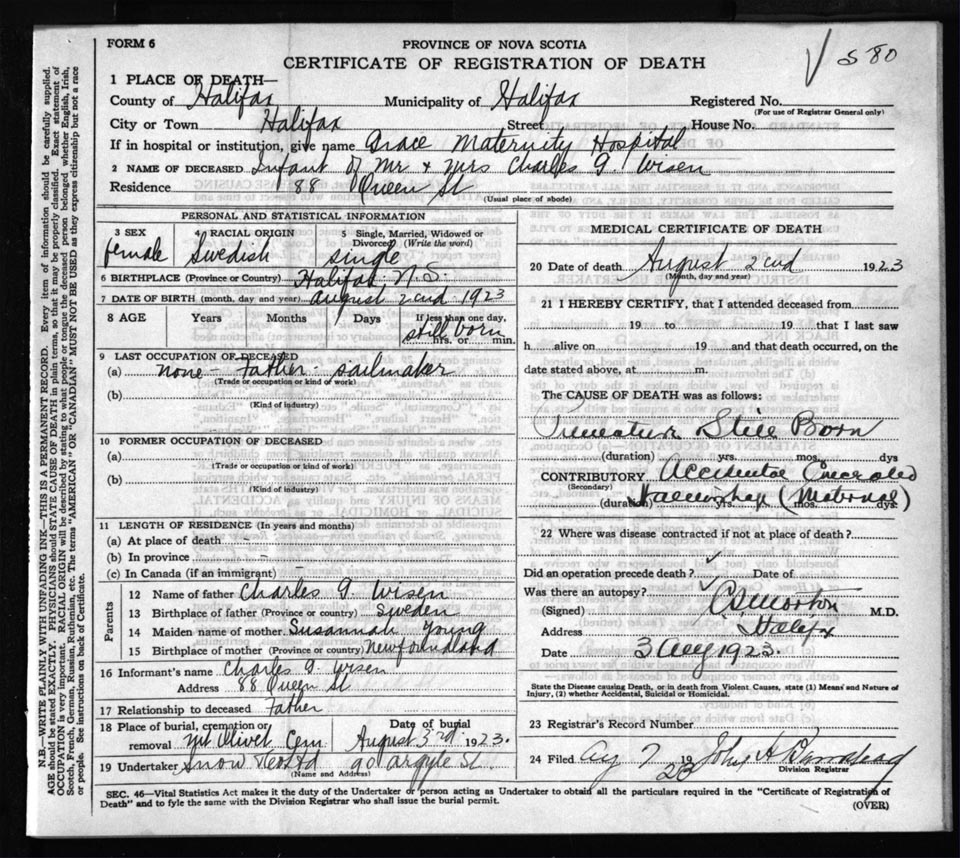 FORM 6
PROVINCE OF NOVA SCOTIA
CERTIFICATE OF REGISTRATION OF DEATH
S 80
1 PLACE OF DEATH—
County of Halifax Municipality of Halifax Registered No.
(For use of Registrar General only)
City or Town Halifax Street House No.
If in hospital or institution, give name Grace Maternity Hospital
2 NAME OF DECEASED Infant of Mr & Mrs Charles G. Wisen
Residence 88 Queen St
(Usual place of abode)
PERSONAL AND STATISTICAL INFORMATION
3 SEX 4 RACIAL ORIGIN 5 Single, Married, Widowed or Divorced (Write the word)
female Swedish single
6 BIRTHPLACE (Province or Country) Halifax N.S.
7 DATE OF BIRTH (month, day and year) august 2nd 1923
8 AGE Years Months Days If less than one day, hrs. or min.
still born
9 LAST OCCUPATION OF DECEASED
(a) none - Father - sailmaker
(Trade or occupation or kind of work)
(b)
(Kind of industry)
10 FORMER OCCUPATION OF DECEASED
(a)
(Trade or occupation or kind of work)
(b)
(Kind of industry)
11 LENGTH OF RESIDENCE (In years and months)
(a) At place of death –
(b) In province –
(c) In Canada (if an immigrant) –
Parents
12 Name of father Charles G. Wisen
13 Birthplace of father (Province or country) Sweden
14 Maiden name of mother Susannah Young
15 Birthplace of mother (Province or country) Newfoundland
16 Informant's name Charles G. Wisen
Address 88 Queen St
17 Relationship to deceased Father
18 Place of burial, cremation or removal Mt Olivet Cem
Date of burial August 3rd 1923.
19 Undertaker Snow & Co Ltd 90 Argyle St.
(Name and Address)
MEDICAL CERTIFICATE OF DEATH
20 Date of death August 2nd 1923
(Month, day and year)
21 I HEREBY CERTIFY, that I attended deceased from
19 to 19 that I last saw
h alive on 19 and that death occurred, on the
date stated above, at m.
The CAUSE OF DEATH was as follows:
Premature Still Born
(duration) yrs. mos. dys
CONTRIBUTORY Accidental Concealed
(Secondary)
(duration) yrs. mos. dys.
Haemorrhage (Maternal)
22 Where was disease contracted if not at place of death?
Did an operation precede death? ✓ Date of
Was there an autopsy? ✓
(Signed) M.D.
Address Halifx
Date 3 Aug 1923.
State the Disease causing Death, or in death from Violent Causes, state (1) Means and Nature of
Injury, (2) whether Accidental, Suicidal or Homicidal.
23 Registrar's Record Number
24 Filed Aug 7 19 23 John A
Division Registrar
SEC. 46—Vital Statistics Act makes it the duty of the Undertaker or person acting as Undertaker to obtain all the particulars required in the "Certificate of Registration of
Death" and to fyle the same with the Division Registrar who shall issue the burial permit.
(OVER)
N.B.—WRITE PLAINLY WITH UNFADING INK—THIS IS A PERMANENT RECORD. Every item of information should be carefully supplied.
AGE should be stated EXACTLY. PHYSICIANS should STATE CAUSE OF DEATH in plain terms, so that it may be properly classified. Exact statement of
OCCUPATION is very important. RACIAL ORIGIN will be described by stating to what people or tongue the deceased person belonged whether English, Irish,
Scotch, French, German, Russian, Ruthenian, etc. The terms "AMERICAN" OR "CANADIAN" MUST NOT BE USED as they express citizenship but not a race
or people. See instructions on back of Certificate.